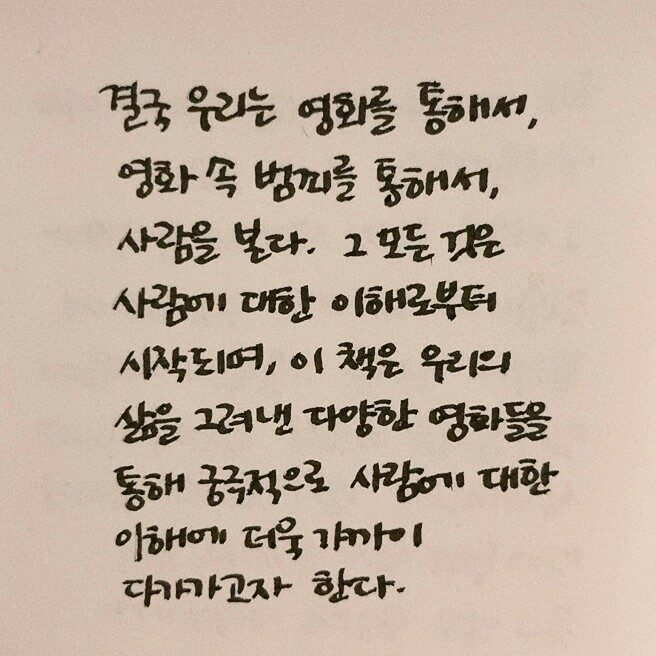 결국 우리는 영화를 통해서,
영화 속 범죄를 통해서,
사람을 본다. 그 모든 것은
사람에 대한 이해로부터
시작되며, 이 책은 우리의
삶을 그려낸 다양한 영화들을
통해 궁극적으로 사람에 대한
이해에 더욱 가까이
다가가고자 한다.